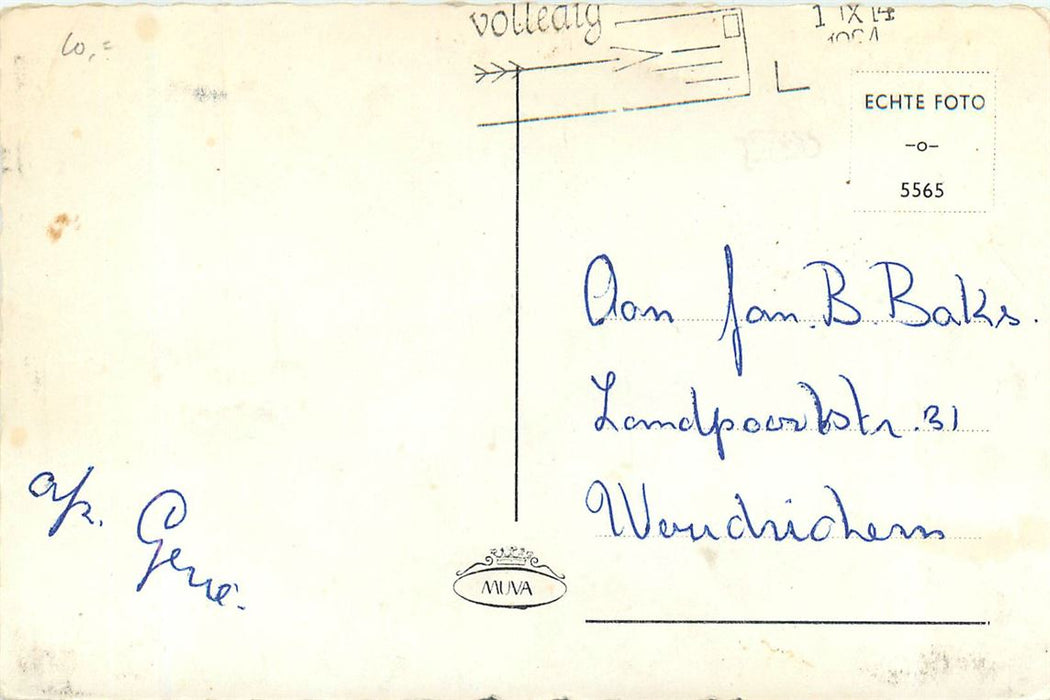 volledig
1 IX 14
L
ECHTE FOTO
-o-
5565
Aan Jan. B. Baks.
Landpoortstr. 31
Woudrichem
afz. Gene.
MUVA